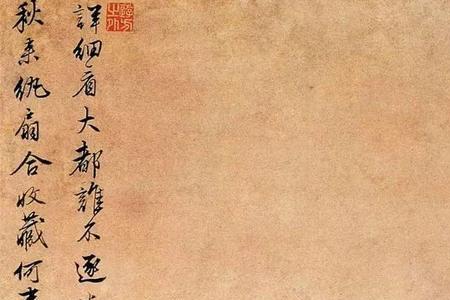 秋來紈扇合收藏何
詳細看大都誰不逐